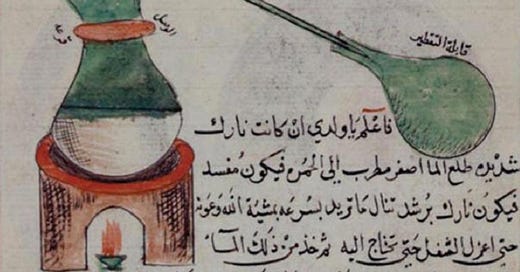 الوصل
قابلة التقطير
فاعلم يا ولدي ان كانت نارك
شديده طلع الما اصفر مطرب الى الحمره فيكون مفسد
فيكون نارك برشد تنال ما تريد بسرعه بمشية الله وعونه
حتى اعزل الثفل حتى تحتاج اليه ثم خذ من ذلك الماء